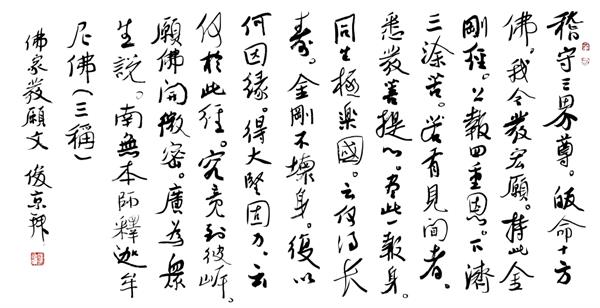 稽守三界尊。皈命十方
佛。我今發宏願。持此金
剛經。上報四重恩。下濟
三涂苦。若有見聞者。
悉發菩提心。盡此一報身。
同生極樂國。云何得長
壽。金剛不壞身。復以
何因緣。得大堅固力。云
何於此經。究竟到彼岸。
願佛開微密。廣為眾
生說。南無本師釋迦牟
尼佛(三稱)
佛家發願文 俊京